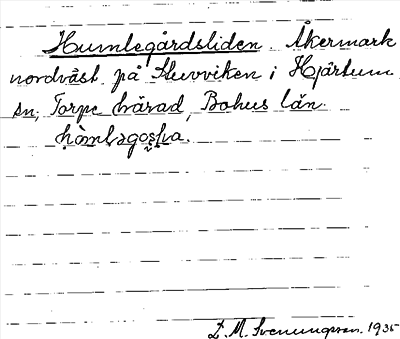 Humlegårdsliden Åkermark
nordväst på Stuvviken i Hjärtum
sn, Torpe härad, Bohus län.
D. M. Svenungsson. 1935